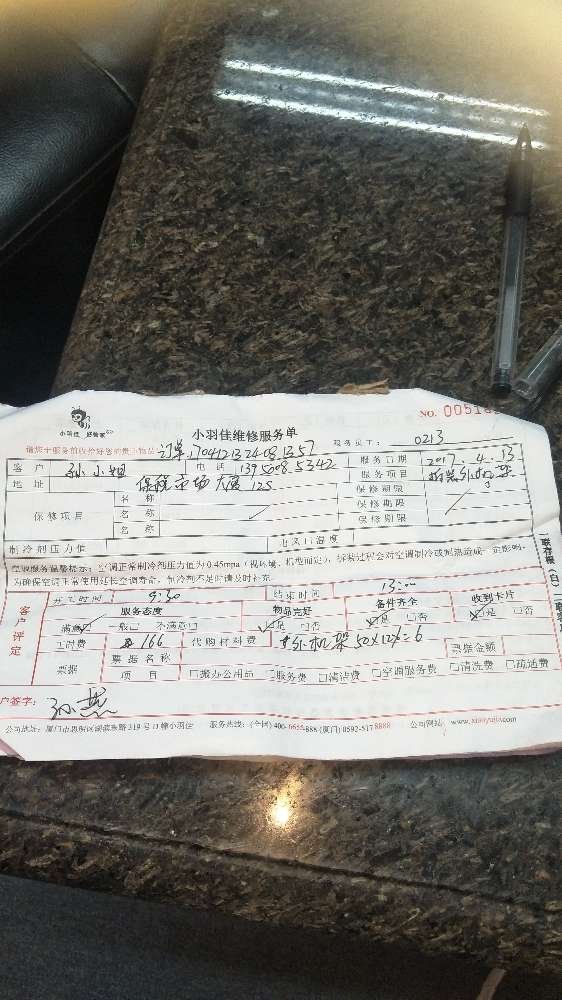 小羽佳 好管家
小羽佳维修服务单
NO. 0051
服务员工: 0213
订单
客户 孙小姐 电话 服务日期 2017.4.13
地址 保税市场大厦 125 服务项目
保修项目 名称 保修期限
名称 保修期限
名称 保修期限
制冷剂压力值 出风口温度
空调服务温馨提示:空调正常制冷剂压力值为0.45mpa(视环境、机型而定),拆装过程会对空调制冷或制热造成一定影响,
为确保空调正常使用延长空调寿命,制冷剂不足时请及时补充。
开工时间 9:30 结束时间 13:00
客户评定
服务态度 物品完好 备件齐全 收到卡片
满意 一般□ 不满意□ 是 □否 是 □否 是 □否
付费 166 代购材料费 外机架 50×12 票据金额
票据 票据名称
项目 □搬办公用品 □服务费 □清洁费 □空调服务费 □清洗费 □疏通费
一联存根(白)
户签字: 孙燕
公司地址: 厦门市 319号 小羽佳 服务热线:(全国) 400-6655-888 (厦门) 0592-5178888 公司网站: www.xiaoyujia.com